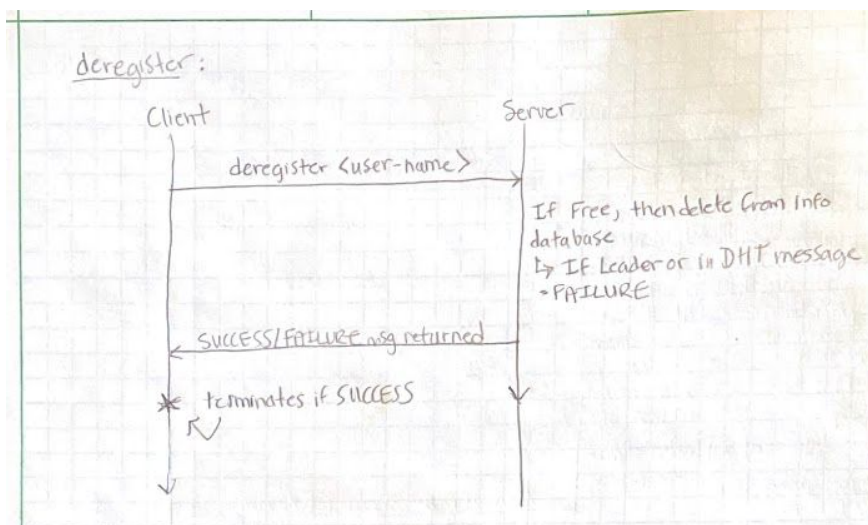 deregister:
Client
Server
deregister <user-name>
If Free, then delete from info
database
↳ If Leader or in DHT message
-FAILURE
SUCCESS/FAILURE msg returned
* terminates if SUCCESS